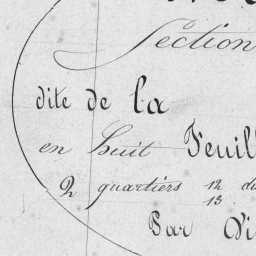 Section
dite de la
en huit Feuill
2 quartiers 12 d
13
Par Di